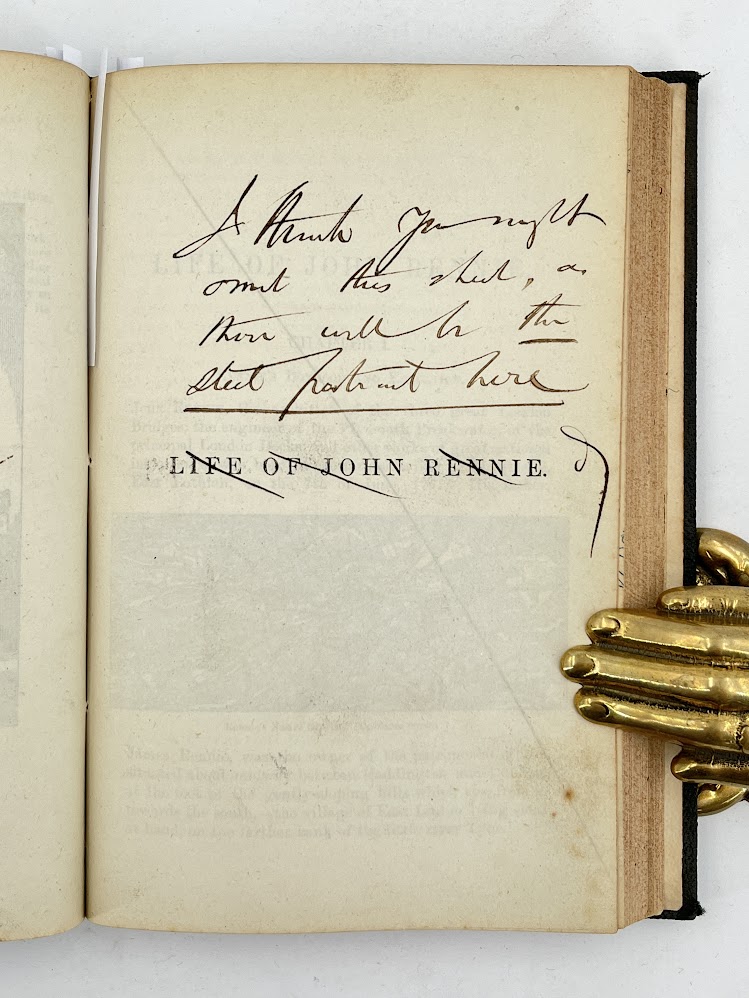 I think you might
omit this sheet, as
there will be the
steel portrait here
LIFE OF JOHN RENNIE.